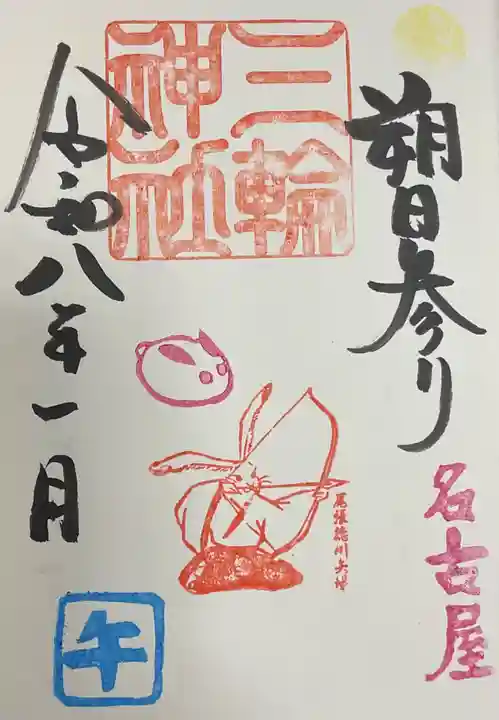 朔日参り
名古屋
三輪
神社
尾張徳川矢場
令和八年一月
午